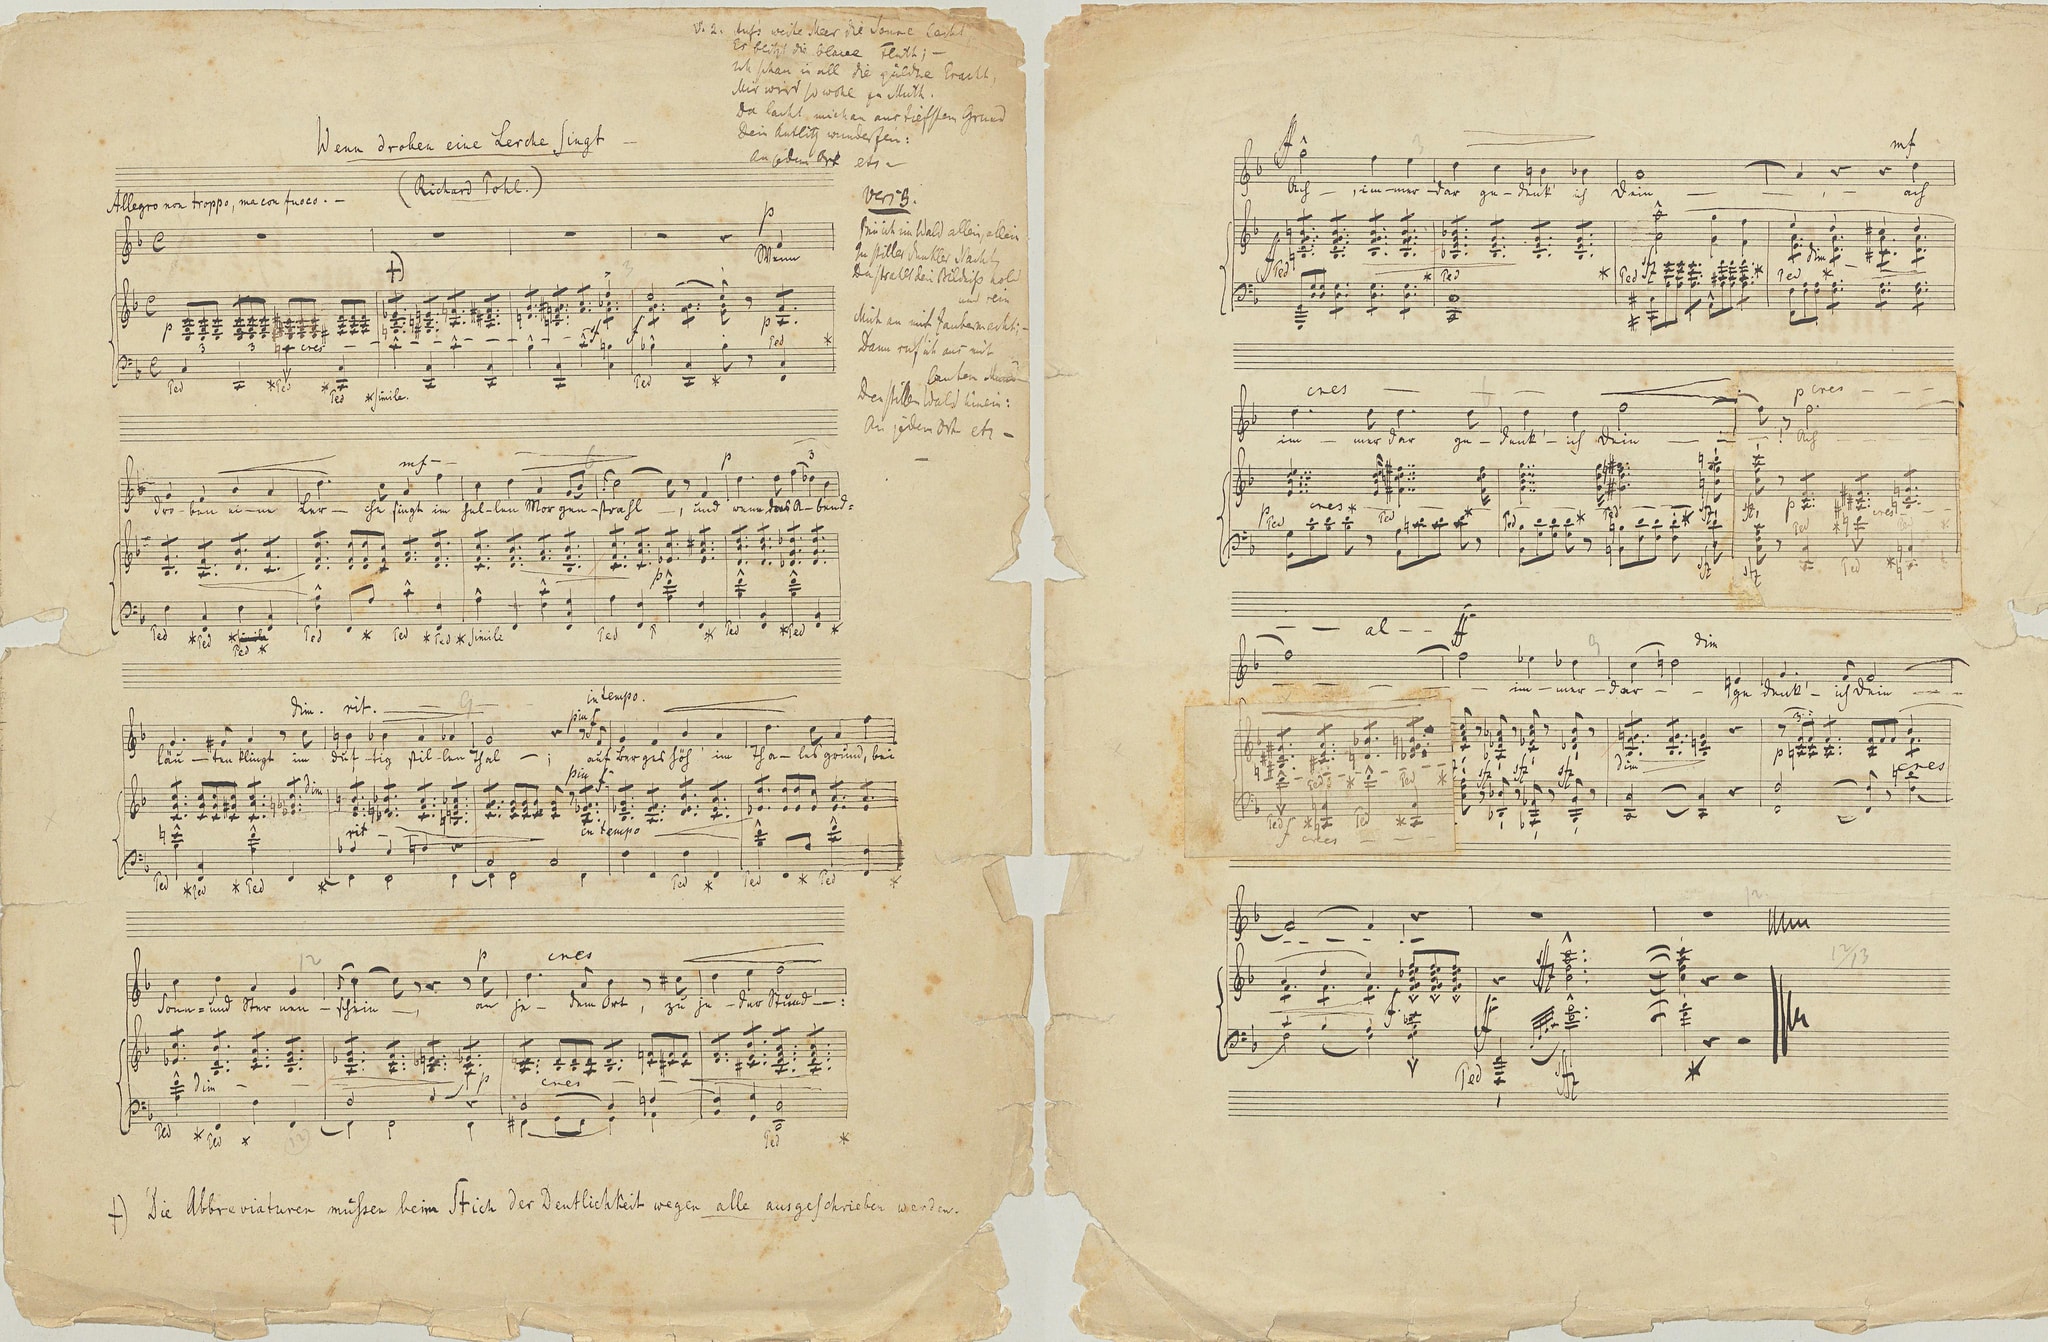 V. 2. Aufs weite Meer die Sonne lacht,
Er blitzt die blaue Fluth; –
Ich schau in all die güldne Pracht,
Mir wird so wohl zu Muth.
Da lacht mich an aus tiefstem Grund
Dein Antlitz wunderfein:
An jedem Ort etc –
Wenn droben eine Lerche singt –
(Richard Pohl.)
Allegro non troppo, ma con fuoco. –
Vers 3.
Bin ich im Wald allein, allein
In stiller dunkler Nacht,
Da strahlt dein Bildniß hold
und rein
Mich an mit Zaubermacht; –
Dann ruf ich aus mit
lautem Mund
Den stillen Wald hinein:
An jedem Ort etc –
p
Wenn
+)
p 3 3 cres f f p Ped *
Ped * Ped * Ped * simile.
mf – p 3
dro-ben ei-ne Ler-che singt im hel-len Mor-gen-strahl –, und wenn das A-bend=
p
Ped * Ped * Ped * Ped * Ped * Ped * simile Ped * Ped * Ped *
dim. rit. in tempo.
più f
läu-ten klingt im duf-tig stil-len Thal –; auf Berges höh' im Tha-les grund, bei
dim più f
rit in tempo
Ped * Ped * Ped * Ped * Ped * Ped *
12 p cres
Sonn= und Ster nen-schein –, an je-dem Ort, zu je-der Stund' –:
dim p cres
Ped * Ped * Ped *
+) Die Abbreviaturen müssen beim Stich der Deutlichkeit wegen alle ausgeschrieben werden.
ff mf
Ach –, im-mer-dar ge-denk' ich Dein –, ach
ff Ped * Ped * Ped sfz * Ped dim *
cres – p cres – –
im-mer dar ge-denk' ich Dein – ! Ach
p Ped cres * Ped * Ped * Ped * sfz sfz p Ped * cres Ped *
sfz sfz
– – al – – ff dim
im-mer-dar – ge denk' ich Dein –
Ped * Ped * sfz sfz sfz dim p 3 cres
Ped f * Ped *
cres – –
12
12/13
f sffz
ff
Ped sffz *